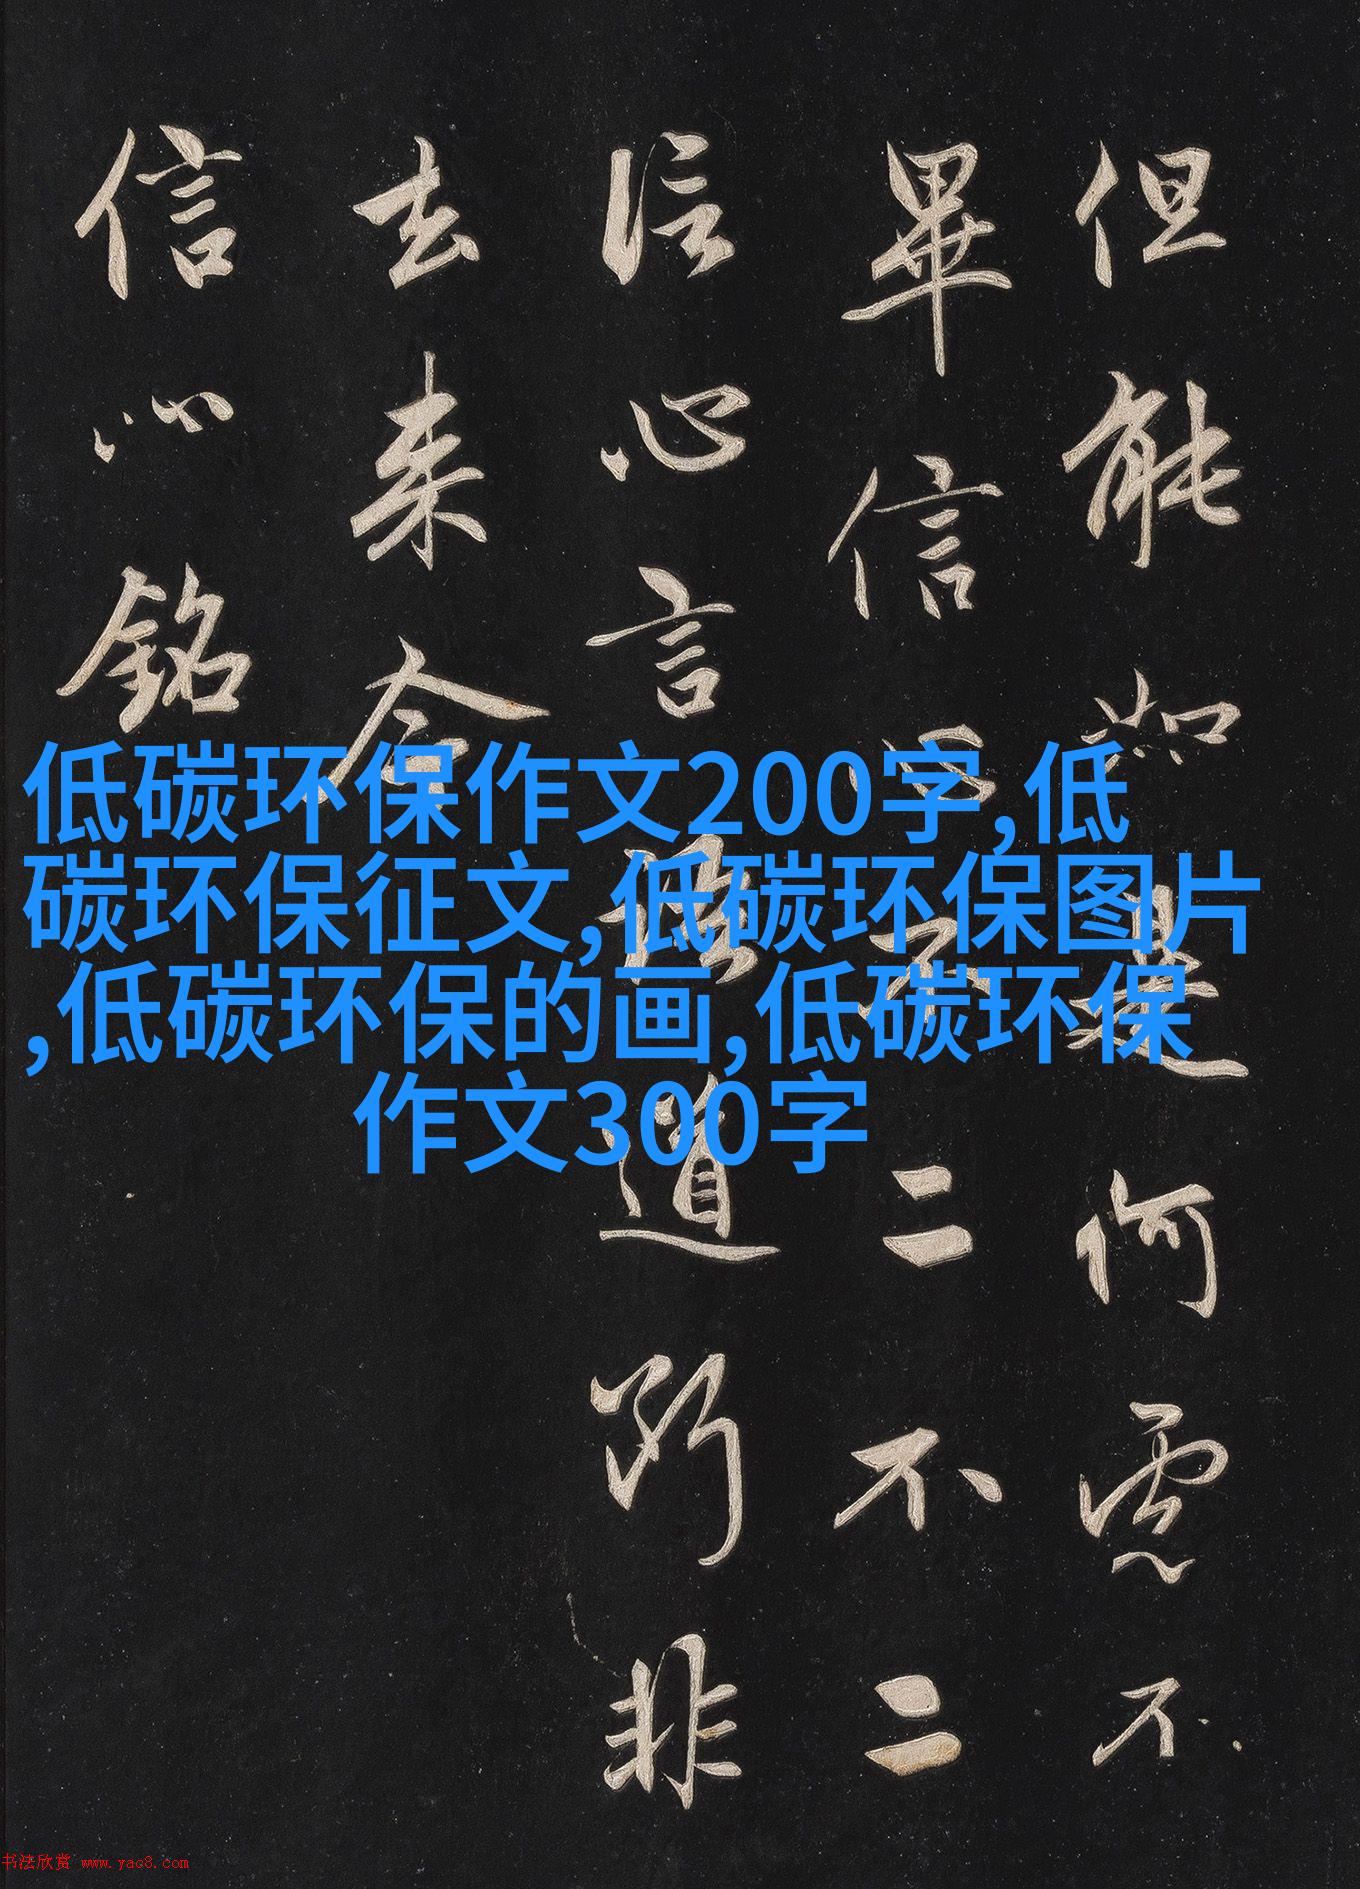 但能如是何慮不
畢信心不二不二
信心言語道斷非
去来今
信心銘
低碳环保作文200字,低
碳环保征文,低碳环保图片
,低碳环保的画,低碳环保
作文300字
书法欣赏 www.yac8.com